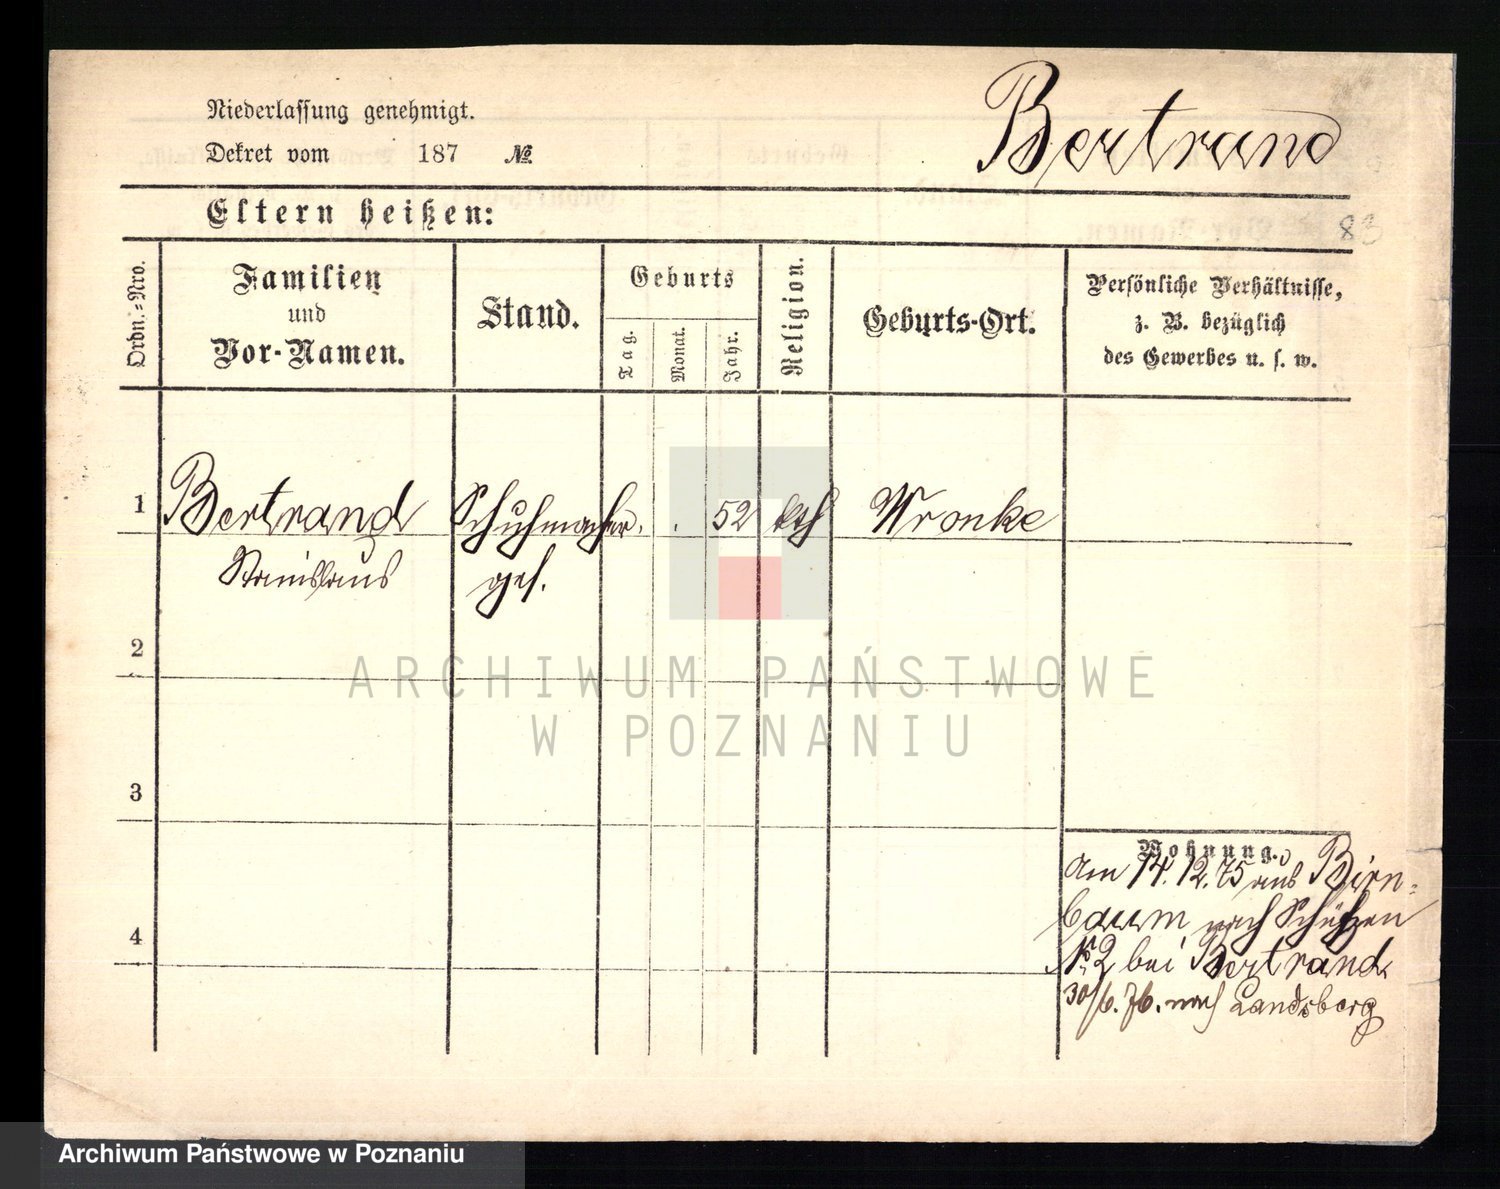 Niederlassung genehmigt.
Dekret vom 187 №
Bertrand
Eltern heißen:
83
Ordn.-Nro.
Familien
und
Vor-Namen.
Stand.
Geburts
Tag.
Monat.
Jahr.
Religion.
Geburts-Ort.
Persönliche Verhältnisse,
z. B. bezüglich
des Gewerbes u. s. w.
1 Bertrand Schuhmacher. . 52 kth Wronke
Stanislaus ges.
2
ARCHIWUM PAŃSTWOWE
W POZNANIU
3
Wohnung.
Am 14.12.75 aus Birn-
baum nach Schützen
4
№ 2 bei Bertrand
30/6.76. nach Landsberg
Archiwum Państwowe w Poznaniu